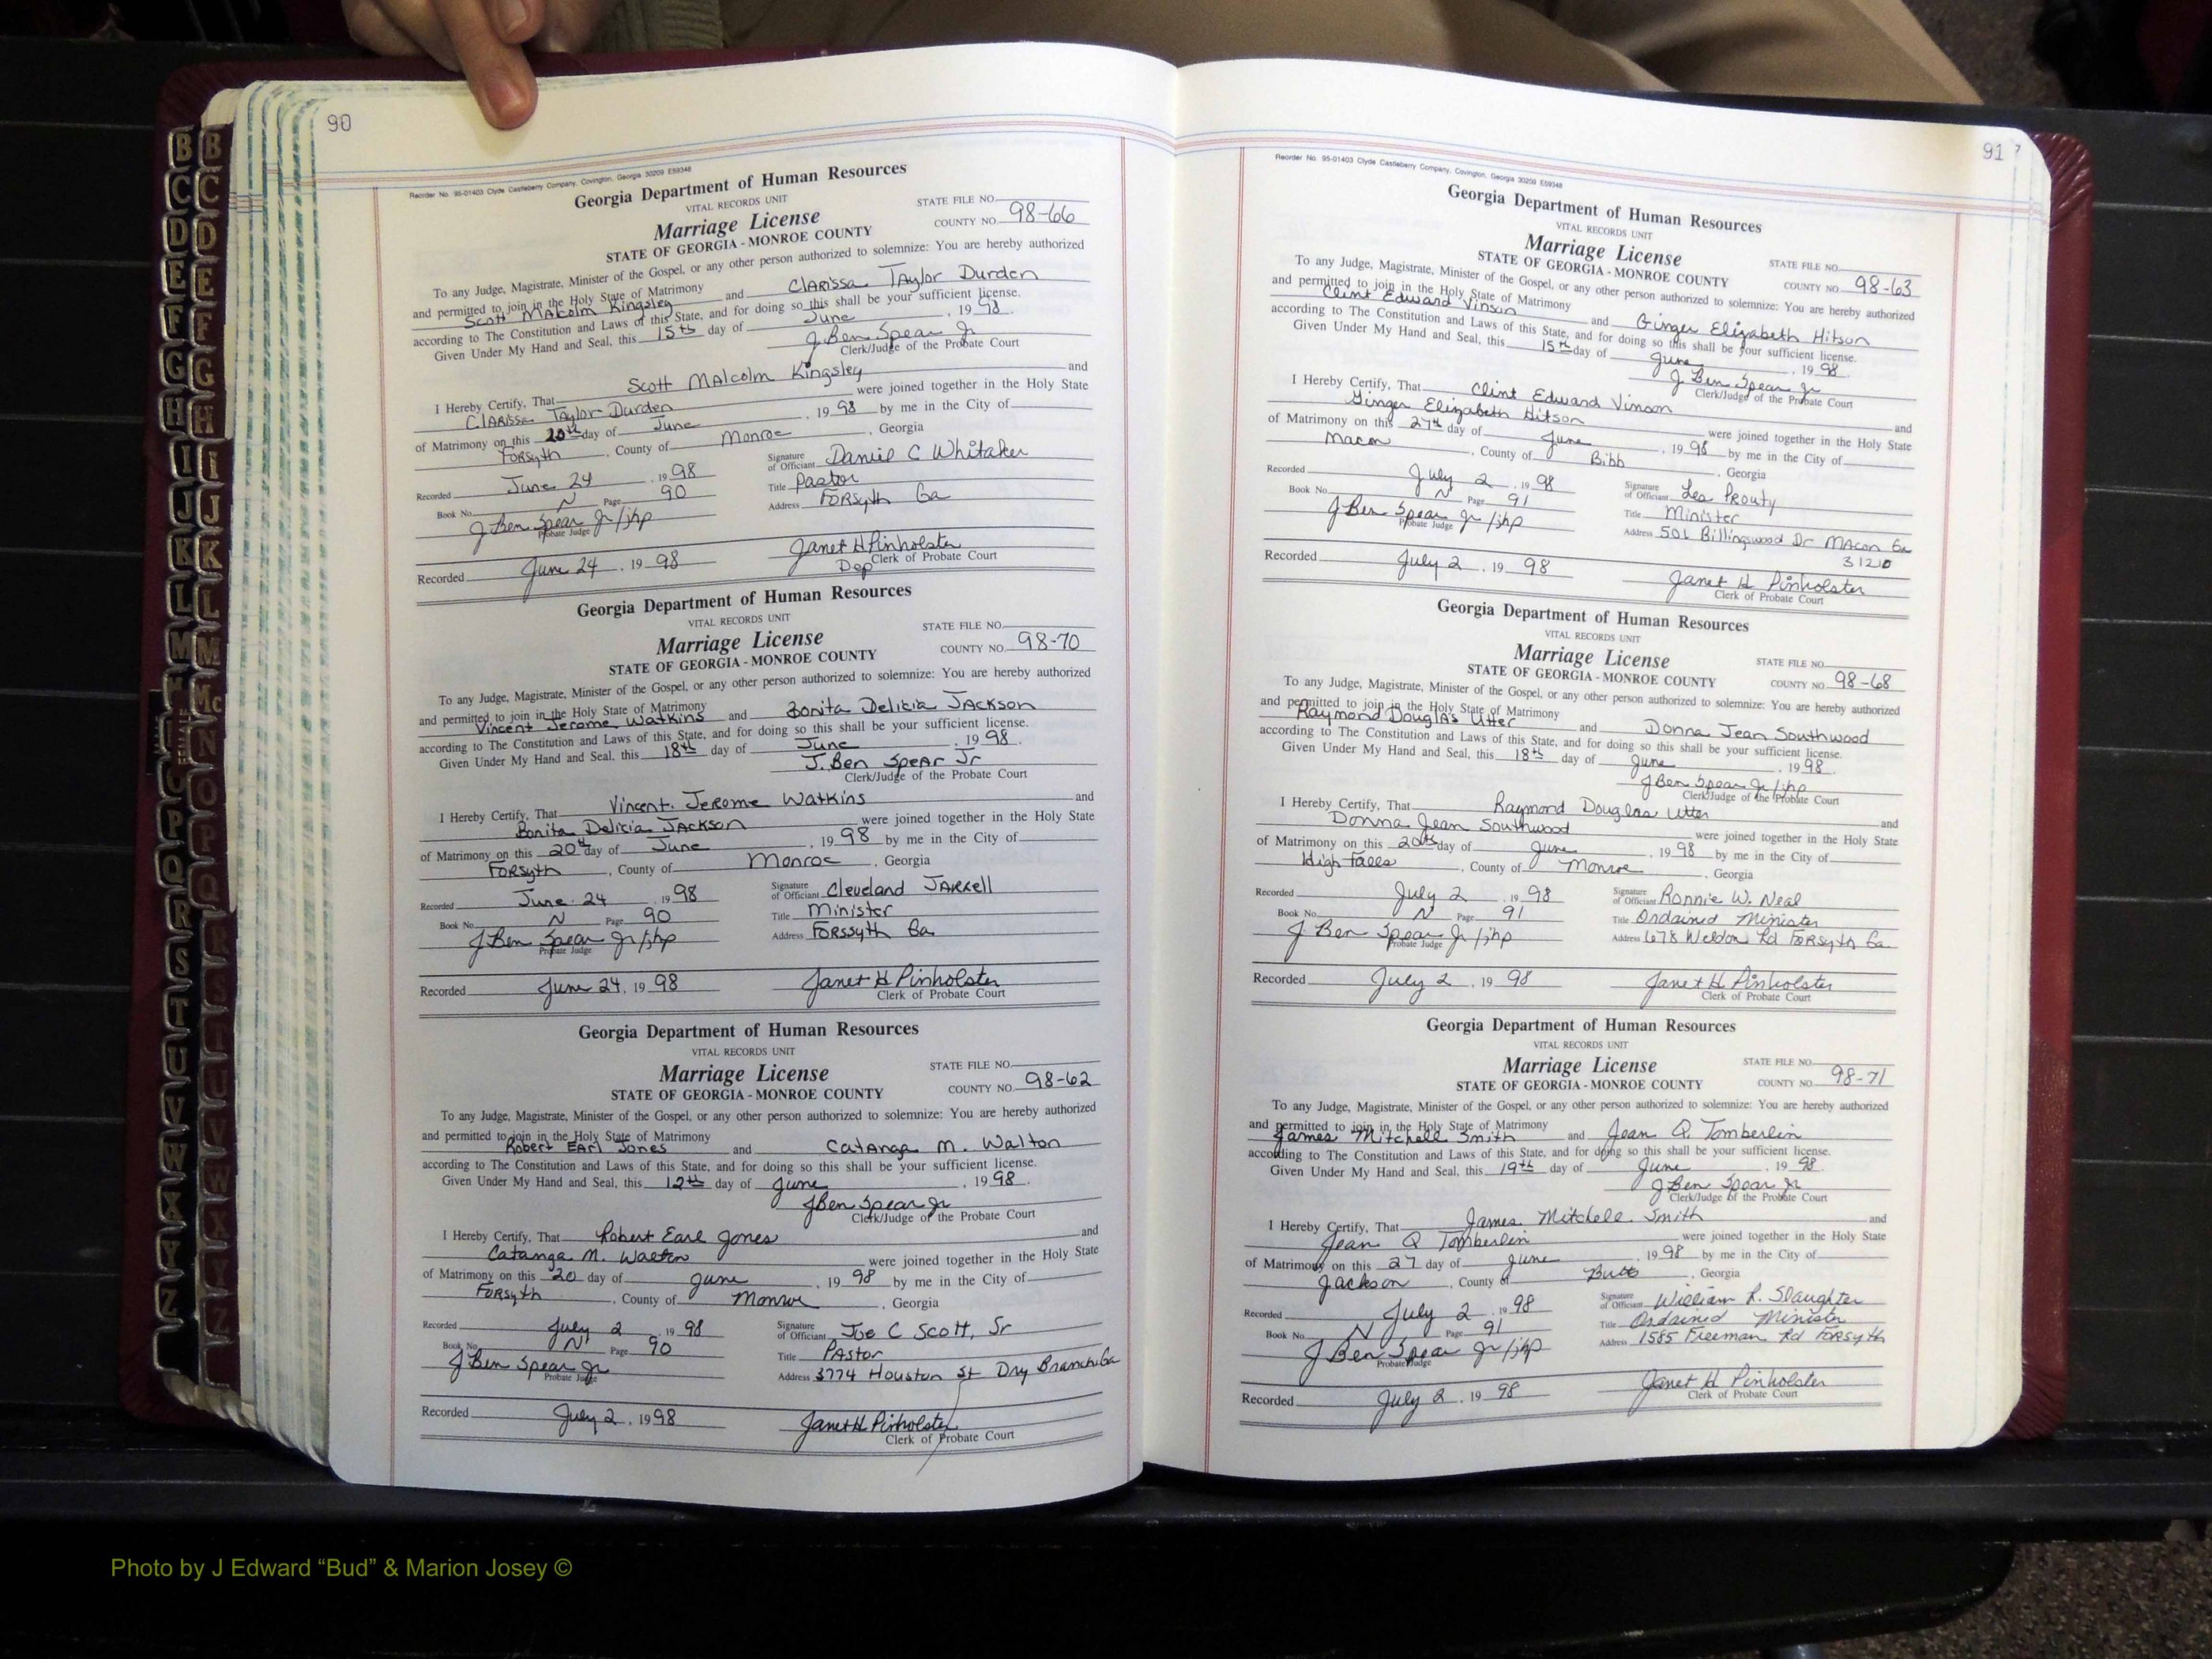 90
Reorder No. 95-01403 Clyde Castleberry Company, Covington, Georgia 30209 E59348
Georgia Department of Human Resources
VITAL RECORDS UNIT
Marriage License
STATE OF GEORGIA - MONROE COUNTY
STATE FILE NO.
COUNTY NO. 98-66
To any Judge, Magistrate, Minister of the Gospel, or any other person authorized to solemnize: You are hereby authorized
and permitted to join in the Holy State of Matrimony
Scott Malcolm Kingsley and Clarissa Taylor Durden
according to The Constitution and Laws of this State, and for doing so this shall be your sufficient license.
Given Under My Hand and Seal, this 15th day of June, 1998.
J Ben Spear Jr
Clerk/Judge of the Probate Court
I Hereby Certify, That Scott Malcolm Kingsley and
Clarissa Taylor Durden were joined together in the Holy State
of Matrimony on this 20th day of June, 1998 by me in the City of
Forsyth, County of Monroe, Georgia
Recorded June 24, 1998
Book No. N Page 90
J Ben Spear Jr/jhp
Probate Judge
Signature of Officiant Daniel C Whitaker
Title Pastor
Address Forsyth Ga
Recorded June 24, 1998
Janet H Pinholster
Dep Clerk of Probate Court
Georgia Department of Human Resources
VITAL RECORDS UNIT
Marriage License
STATE OF GEORGIA - MONROE COUNTY
STATE FILE NO.
COUNTY NO. 98-70
To any Judge, Magistrate, Minister of the Gospel, or any other person authorized to solemnize: You are hereby authorized
and permitted to join in the Holy State of Matrimony
Vincent Jerome Watkins and Bonita Delicia Jackson
according to The Constitution and Laws of this State, and for doing so this shall be your sufficient license.
Given Under My Hand and Seal, this 18th day of June, 1998.
J. Ben Spear Jr
Clerk/Judge of the Probate Court
I Hereby Certify, That Vincent Jerome Watkins and
Bonita Delicia Jackson were joined together in the Holy State
of Matrimony on this 20th day of June, 1998 by me in the City of
Forsyth, County of Monroe, Georgia
Recorded June 24, 1998
Book No. N Page 90
J Ben Spear Jr/jhp
Probate Judge
Signature of Officiant Cleveland Jarrell
Title Minister
Address Forssyth Ga
Recorded June 24, 1998
Janet H Pinholster
Clerk of Probate Court
Georgia Department of Human Resources
VITAL RECORDS UNIT
Marriage License
STATE OF GEORGIA - MONROE COUNTY
STATE FILE NO.
COUNTY NO. 98-62
To any Judge, Magistrate, Minister of the Gospel, or any other person authorized to solemnize: You are hereby authorized
and permitted to join in the Holy State of Matrimony
Robert Earl Jones and Catanga M. Walton
according to The Constitution and Laws of this State, and for doing so this shall be your sufficient license.
Given Under My Hand and Seal, this 12th day of June, 1998.
J Ben Spear Jr
Clerk/Judge of the Probate Court
I Hereby Certify, That Robert Earl Jones and
Catanga M. Walton were joined together in the Holy State
of Matrimony on this 20 day of June, 1998 by me in the City of
Forsyth, County of Monroe, Georgia
Recorded July 2, 1998
Book No. N Page 90
J Ben Spear Jr
Probate Judge
Signature of Officiant Joe C Scott, Sr
Title Pastor
Address 3774 Houston St Dry Branch Ga
Recorded July 2, 1998
Janet H Pinholster
Clerk of Probate Court
91
Reorder No. 95-01403 Clyde Castleberry Company, Covington, Georgia 30209 E59348
Georgia Department of Human Resources
VITAL RECORDS UNIT
Marriage License
STATE OF GEORGIA - MONROE COUNTY
STATE FILE NO.
COUNTY NO. 98-63
To any Judge, Magistrate, Minister of the Gospel, or any other person authorized to solemnize: You are hereby authorized
and permitted to join in the Holy State of Matrimony
Clint Edward Vinson and Ginger Elizabeth Hitson
according to The Constitution and Laws of this State, and for doing so this shall be your sufficient license.
Given Under My Hand and Seal, this 15th day of June, 1998.
J Ben Spear Jr
Clerk/Judge of the Probate Court
I Hereby Certify, That Clint Edward Vinson and
Ginger Elizabeth Hitson were joined together in the Holy State
of Matrimony on this 27th day of June, 1998 by me in the City of
Macon, County of Bibb, Georgia
Recorded July 2, 1998
Book No. N Page 91
J Ben Spear Jr/jhp
Probate Judge
Signature of Officiant Les Prouty
Title Minister
Address 501 Billingswood Dr Macon Ga
31210
Recorded July 2, 1998
Janet H Pinholster
Clerk of Probate Court
Georgia Department of Human Resources
VITAL RECORDS UNIT
Marriage License
STATE OF GEORGIA - MONROE COUNTY
STATE FILE NO.
COUNTY NO. 98-68
To any Judge, Magistrate, Minister of the Gospel, or any other person authorized to solemnize: You are hereby authorized
and permitted to join in the Holy State of Matrimony
Raymond Douglas Utter and Donna Jean Southwood
according to The Constitution and Laws of this State, and for doing so this shall be your sufficient license.
Given Under My Hand and Seal, this 18th day of June, 1998.
J Ben Spear Jr/jhp
Clerk/Judge of the Probate Court
I Hereby Certify, That Raymond Douglas Utter and
Donna Jean Southwood were joined together in the Holy State
of Matrimony on this 20th day of June, 1998 by me in the City of
High Falls, County of Monroe, Georgia
Recorded July 2, 1998
Book No. N Page 91
J Ben Spear Jr/jhp
Probate Judge
Signature of Officiant Ronnie W. Neal
Title Ordained Minister
Address 678 Weldon Rd Forsyth Ga
Recorded July 2, 1998
Janet H Pinholster
Clerk of Probate Court
Georgia Department of Human Resources
VITAL RECORDS UNIT
Marriage License
STATE OF GEORGIA - MONROE COUNTY
STATE FILE NO.
COUNTY NO. 98-71
To any Judge, Magistrate, Minister of the Gospel, or any other person authorized to solemnize: You are hereby authorized
and permitted to join in the Holy State of Matrimony
James Mitchell Smith and Jean Q. Tomberlin
according to The Constitution and Laws of this State, and for doing so this shall be your sufficient license.
Given Under My Hand and Seal, this 19th day of June, 1998.
J Ben Spear Jr
Clerk/Judge of the Probate Court
I Hereby Certify, That James Mitchell Smith and
Jean Q Tomberlin were joined together in the Holy State
of Matrimony on this 27 day of June, 1998 by me in the City of
Jackson, County of Butts, Georgia
Recorded July 2, 1998
Book No. N Page 91
J Ben Spear Jr/jhp
Probate Judge
Signature of Officiant William R. Slaughter
Title Ordained Minister
Address 1585 Freeman Rd Forsyth
Recorded July 2, 1998
Janet H Pinholster
Clerk of Probate Court
Photo by J Edward “Bud” & Marion Josey ©